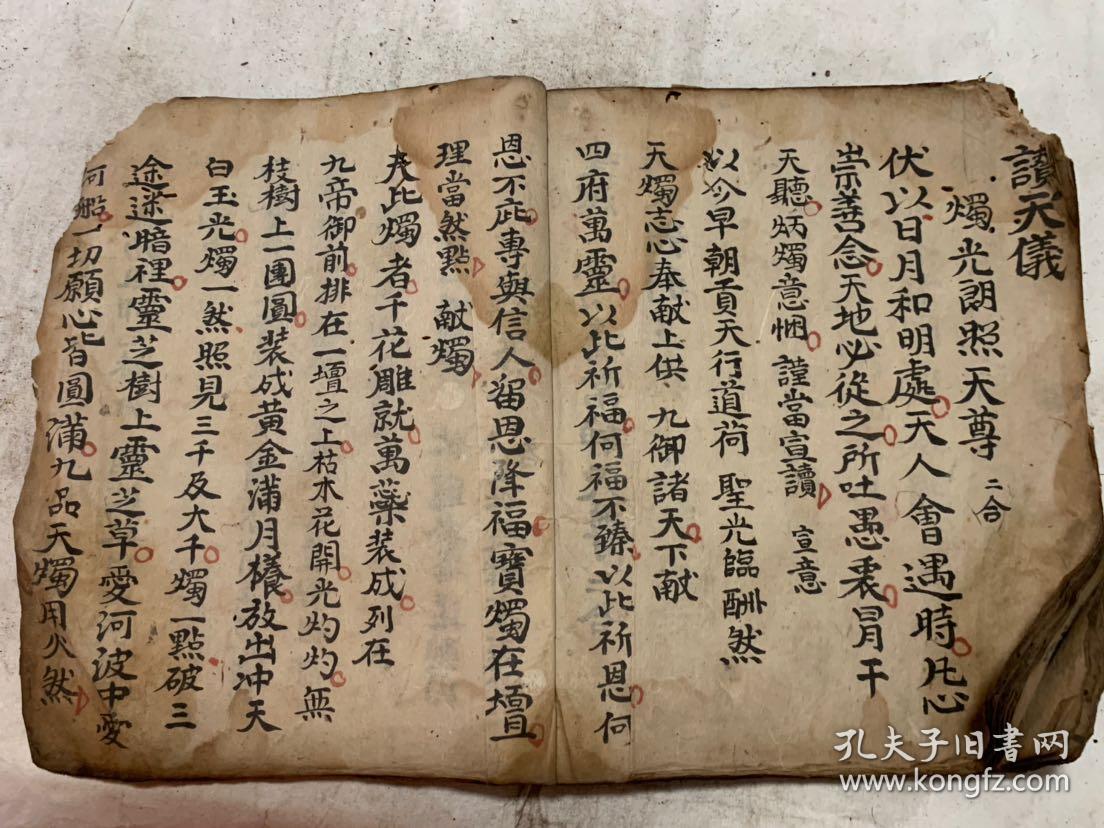 讃天儀
燭光朗照天尊 二合
伏以日月和明處天人會遇時凡心
崇善念天地必從之所吐愚衷冒干
天聽炳燭意悃謹當宣讀 宣意
以今早朝貢天行道荷 聖光臨酬然
天燭志心奉献上供 九御諸天下献
四府萬靈以此祈福何福不臻以此祈恩何
恩不庇專與信人畱恩降福寶燭在壇
理當然點 献燭
夫此燭者千花雕就萬藥装成列在
九帝御前排在一壇之上枯木花開光灼灼無
枝樹上一團圓装成黃金滿月樣放出冲天
白玉光燭一然照見三千及大千燭一點破三
途迷暗裡靈芝樹上靈芝草愛河波中愛
河船一切願心皆圓滿九品天燭用火然
孔夫子旧書网
www.kongfz.com